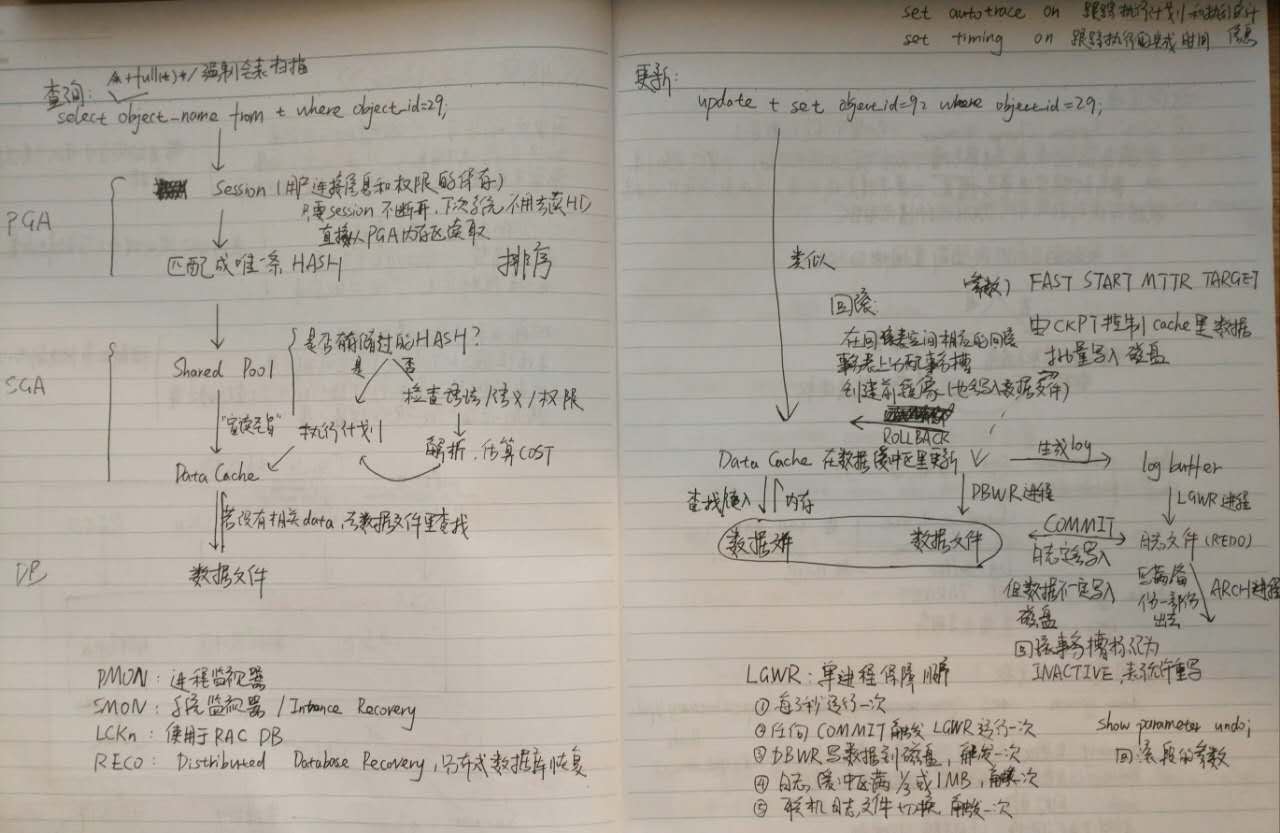 查询: /*+full(t)*/强制全表扫描
select object_name from t where object_id=29;
PGA
Session (用户连接信息和权限的保存)
只要session不断开,下次系统不用去读HD
直接从PGA内存区读取
匹配成唯一条HASH
排序
SGA
Shared Pool
是否存储过的HASH?
是 否
检查语法/语义/权限
执行计划
解析,估算COST
Data Cache
若没有相关data,去数据文件里查找
DB
数据文件
PMON: 进程监视器
SMON: 系统监视器/Intance Recovery
LCKn: 使用于RAC DB
RECO: Distributed Database Recovery,分布式数据库恢复
set autotrace on 跟踪执行计划和执行统计
set timing on 跟踪执行完成时间 信息
更新:
update t set object_id=92 where object_id=29;
类似
(参数) FAST START MTTR TARGET
由CKPT控制cache里数据
批量写入磁盘
回滚:
在回滚表空间相应的回滚
事务表上分配事务槽
创建前镜像(也写入数据文件)
ROLLBACK
Data Cache 在数据缓冲区里更新
生成log
log buffer
查找 读入
内存
DBWR进程
LGWR进程
数据文件
数据文件
COMMIT
日志文件(REDO)
日志定会写入
但数据不一定写入
磁盘
写满备
份一部份
出去
ARCH进程
回滚事务槽标记为
INACTIVE,表示允许重写
LGWR: 单进程保障顺序
① 每3秒运行一次
② 任何COMMIT触发LGWR运行一次
③ DBWR写数据到磁盘,触发一次
④ 日志缓冲区满⅓或1MB,触发一次
⑤ 联机日志文件切换,触发一次
show parameter undo;
回滚段的参数